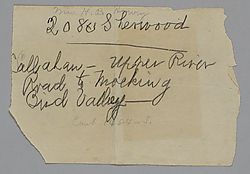 2080 Sherwood
Callahan - Upper River
Brad to Mocking
Bird Valley